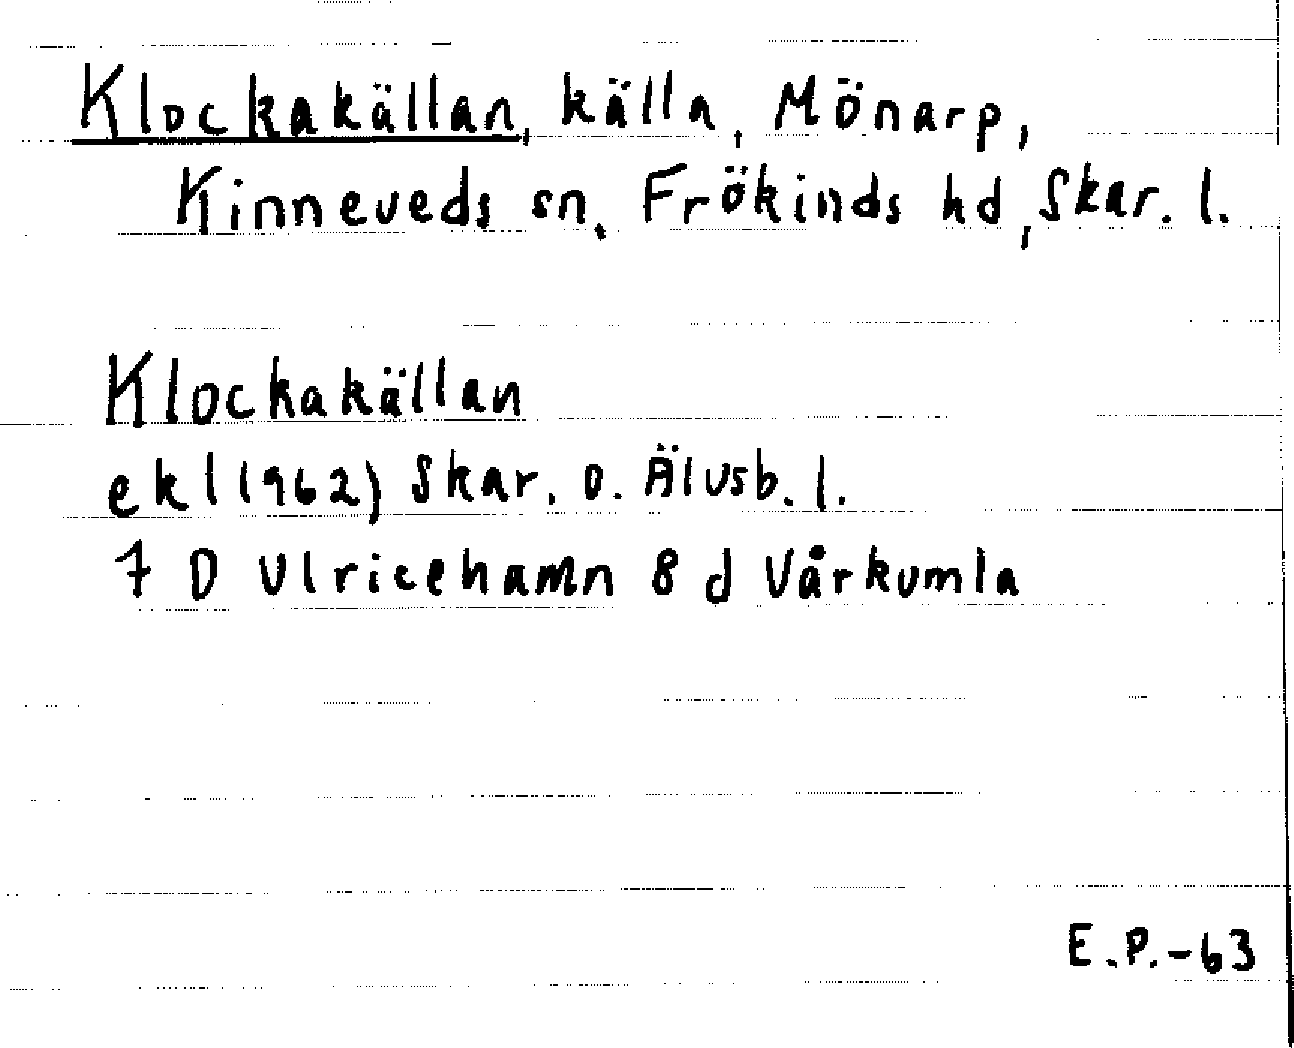 Klockakällan, källa, Mönarp,
Kinneveds sn, Frökinds hd, Skar. l.
Klockakällan
ekl (1962) Skar. o. Älvsb. l.
7 D Ulricehamn 8 d Vårkumla
E.P.-63